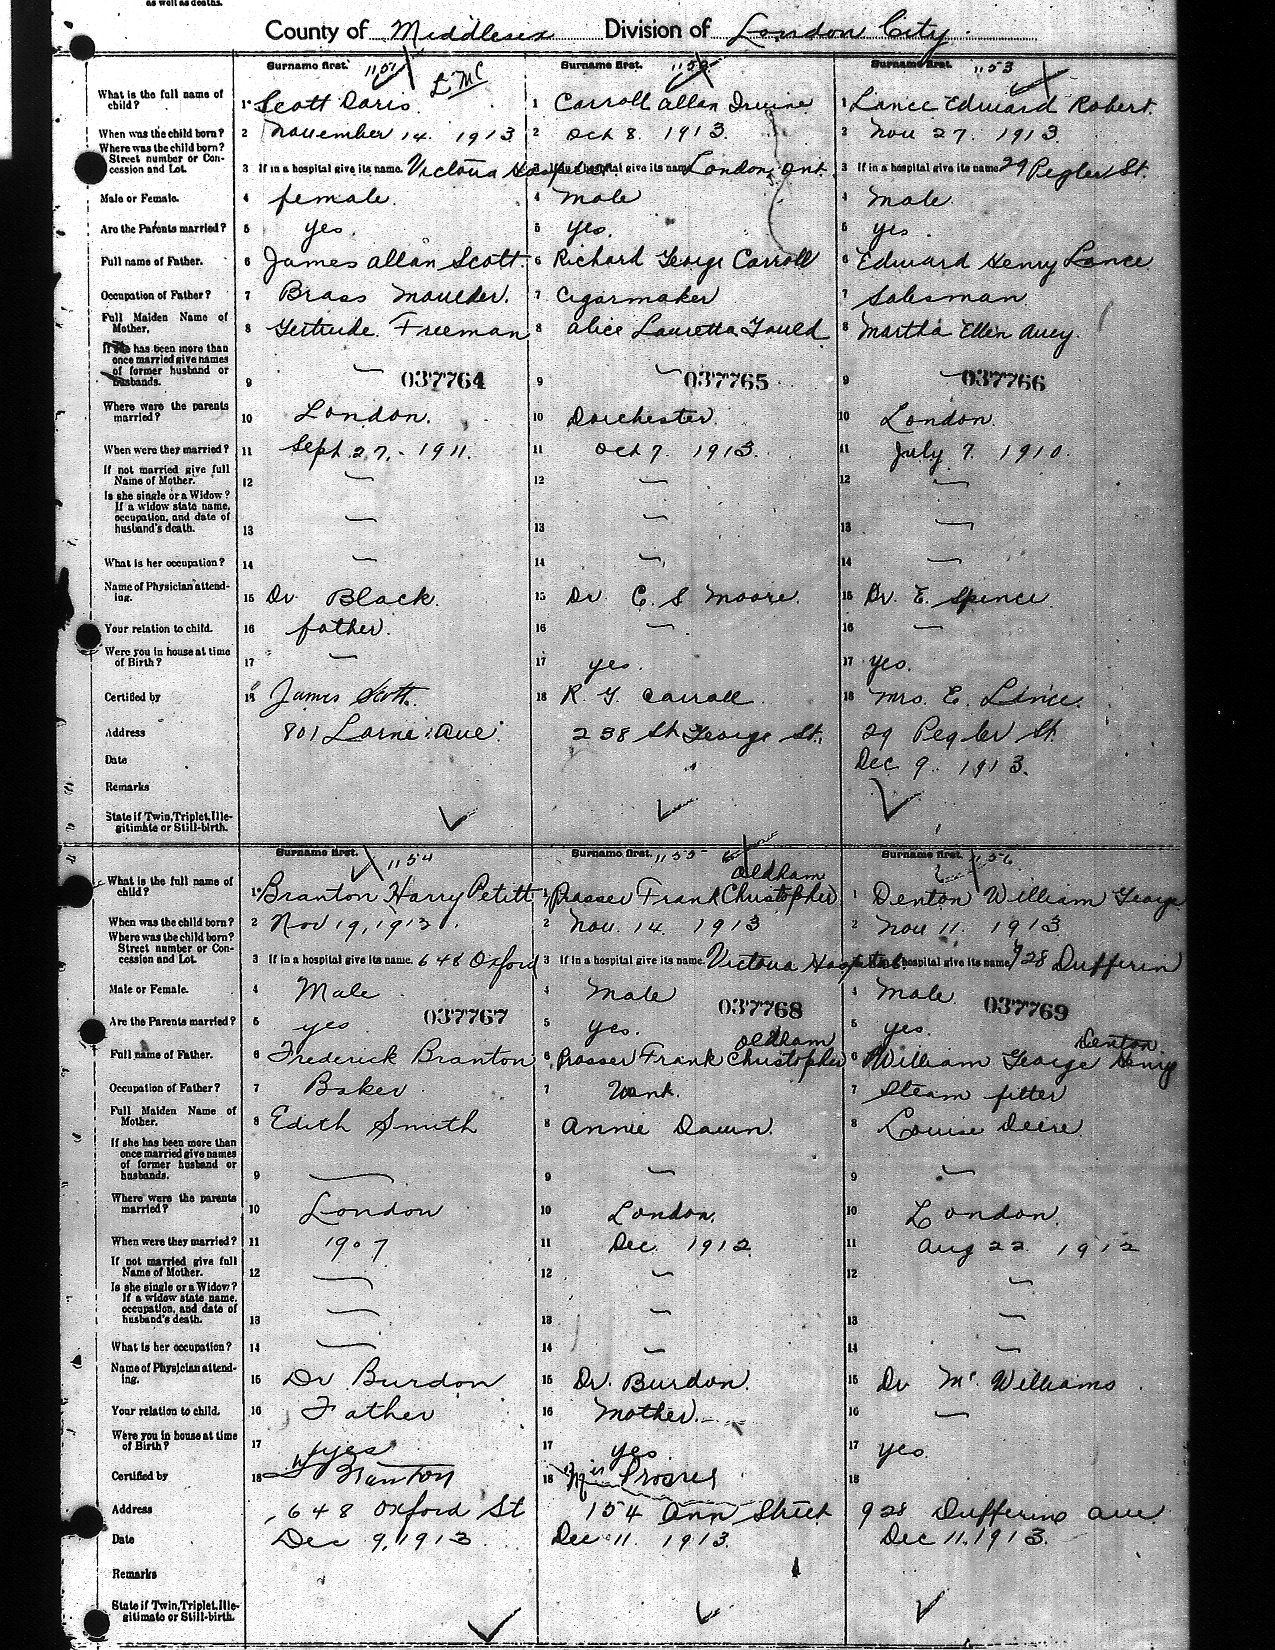 as well as deaths.
County of Middlesex Division of London City.
Surname first. 1151 Surname first. 1152 Surname first. 1153
What is the full name of child? 1 Scott Doris 1 Carroll Allan Irvine 1 Lance Edward Robert.
When was the child born? 2 November 14. 1913 2 Oct 8. 1913. 2 Nov 27. 1913.
Where was the child born? Street number or Concession and Lot. 3 If in a hospital give its name. Victoria Hospital 3 If in a hospital give its name London, Ont. 3 If in a hospital give its name 29 Pegler St.
Male or Female. 4 female. 4 male 4 male.
Are the Parents married? 5 yes. 5 yes. 5 yes.
Full name of Father. 6 James Allan Scott. 6 Richard George Carroll 6 Edward Henry Lance
Occupation of Father? 7 Brass Moulder. 7 Cigarmaker 7 Salesman
Full Maiden Name of Mother. 8 Gertrude Freeman 8 Alice Lauretta Gould 8 Martha Ellen Avey.
If she has been more than once married give names of former husband or husbands. 9 — 037764 9 — 037765 9 — 037766
Where were the parents married? 10 London. 10 Dorchester. 10 London.
When were they married? 11 Sept. 27. - 1911. 11 Oct 7. 1913. 11 July 7. 1910.
If not married give full Name of Mother. 12 — 12 — 12 —
Is she single or a Widow? If a widow state name, occupation, and date of husband's death. 13 — 13 — 13 —
What is her occupation? 14 — 14 — 14 —
Name of Physician attending. 15 Dr Black. 15 Dr C. S Moore. 15 Dr. E. Spence.
Your relation to child. 16 father. 16 — 16 —
Were you in house at time of Birth? 17 — 17 yes. 17 yes.
Certified by 18 James Scott. 18 R. G Carroll 18 Mrs. E. Lance.
Address 801 Lorne Ave 238 St George St. 29 Pegler St.
Date Dec 9. 1913.
Remarks
State if Twin, Triplet, Illegitimate or Still-birth.
Surname first. 1154 Surname first. 1155 Surname first. 1156
Oldham
What is the full name of child? 1 Branton Harry Petitt 1 Prosser Frank Christopher 1 Denton William George
When was the child born? 2 Nov 19, 1913. 2 Nov. 14. 1913 2 Nov 11. 1913
Where was the child born? Street number or Concession and Lot. 3 If in a hospital give its name. 648 Oxford 3 If in a hospital give its name. Victoria Hospital. hospital give its name 928 Dufferin
Male or Female. 4 Male 4 male 4 male.
037767 037768 037769
Are the Parents married? 5 yes 5 yes. 5 yes.
Oldham Denton
Full name of Father. 6 Frederick Branton 6 Prosser Frank Christopher 6 William George Henry
Occupation of Father? 7 Baker 7 7 Steam fitter
Full Maiden Name of Mother. 8 Edith Smith 8 Annie Dawn 8 Louise Deere
If she has been more than once married give names of former husband or husbands. 9 — 9 — 9 —
Where were the parents married? 10 London 10 London. 10 London.
When were they married? 11 1907 11 Dec. 1912. 11 Aug 22. 1912
If not married give full Name of Mother. 12 — 12 — 12 —
Is she single or a Widow? If a widow state name, occupation, and date of husband's death. 13 — 13 — 13 —
What is her occupation? 14 — 14 — 14 —
Name of Physician attending. 15 Dr Burdon 15 Dr. Burdon. 15 Dr McWilliams
Your relation to child. 16 Father 16 Mother. 16 —
Were you in house at time of Birth? 17 yes 17 yes 17 yes.
Certified by 18 Branton 18 Mrs Prosser 18
Address 648 Oxford St 154 Ann Street 928 Dufferin ave
Date Dec 9, 1913 Dec 11. 1913. Dec 11. 1913.
Remarks
State if Twin, Triplet, Illegitimate or Still-birth.